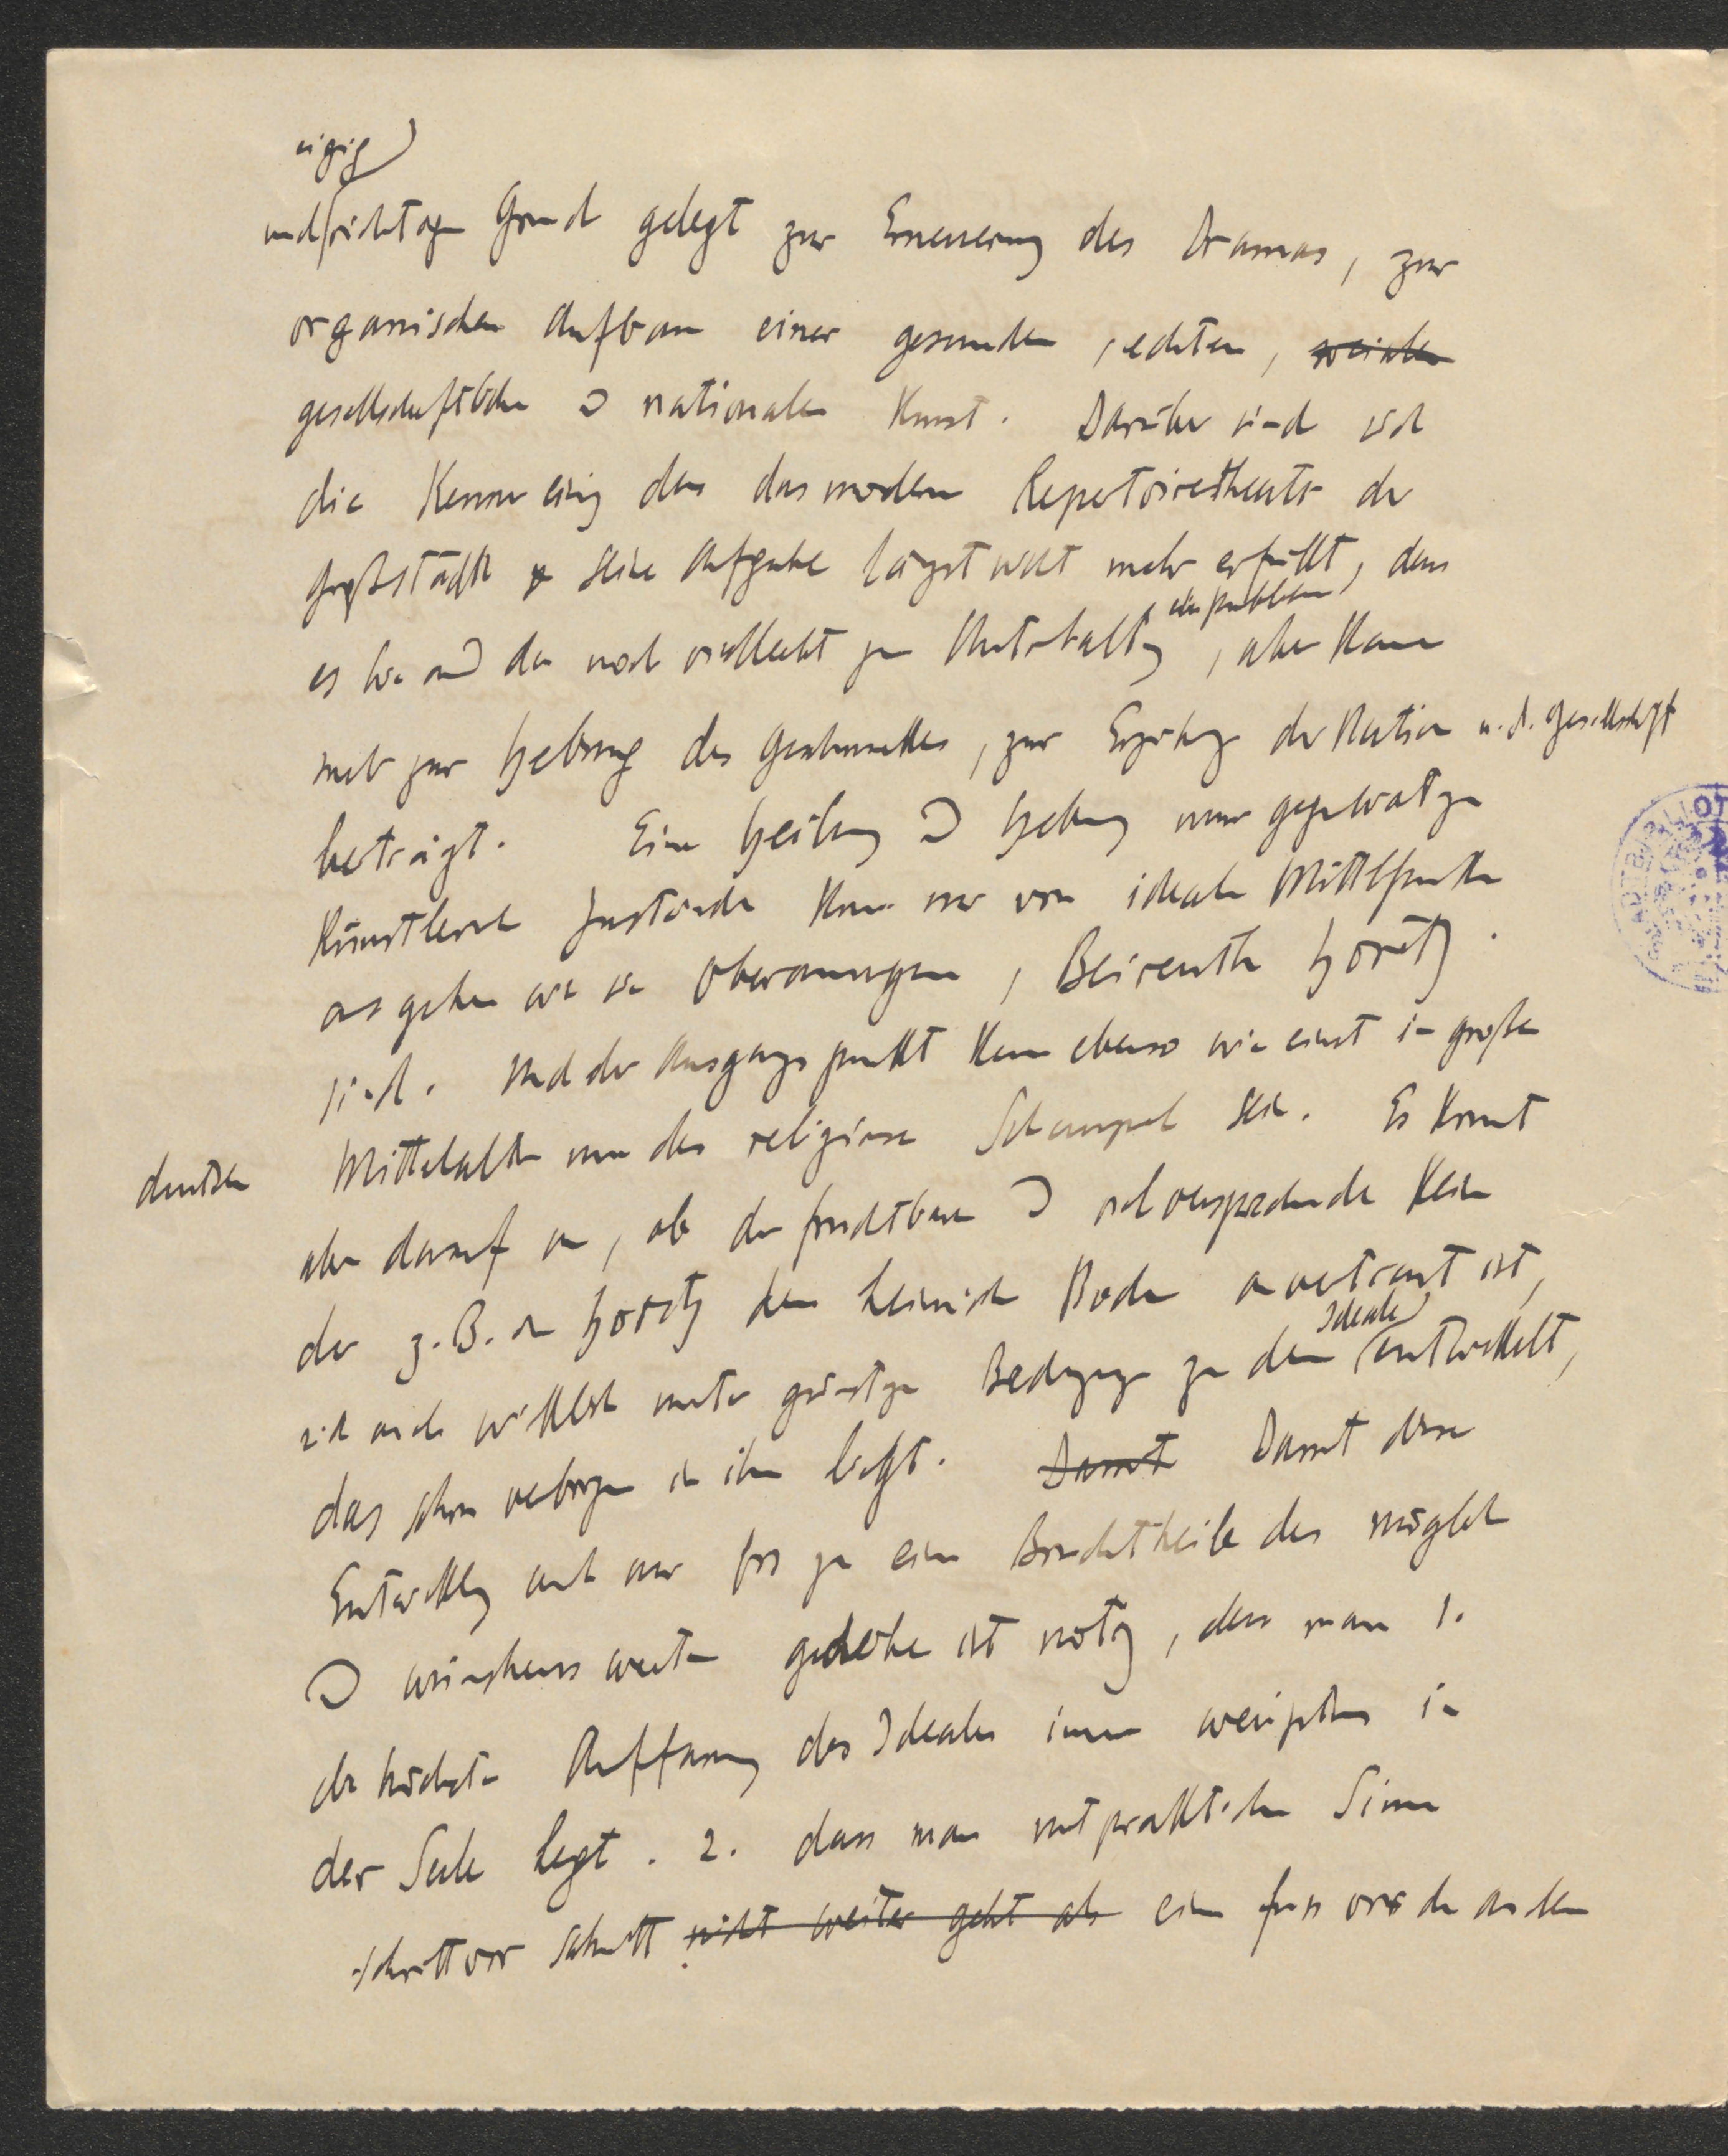 einzig
und richtigen Grund gelegt zur Erneuerung des Dramas, zur
organischen Aufbau einer gesunden, echten, socialen
gesellschaftlichen & nationalen Kunst. Darüber sind sich
die Kenner einig dass das moderne Repertoiretheater der
Großstädte seine Aufgabe längst nicht mehr erfüllt, dass
es hie und da noch vielleicht zur Unterhaltung des Publikum, aber kaum
mehr zur Hebung des Geschmackes, zur Erziehung der Nation u. d. Gesellschaft
beiträgt. Eine Heilung & Hebung unser gegenwärtigen
künstlerischen Zustände kann nur von idealen Mittelpunkten
ausgehen wie es Oberammergau, Beireuth Höritz
sind. Und der Ausgangspunkt kann ebenso wie einst im großen
deutschen Mittelalter nur das religiöse Schauspiel sein. Es kommt
aber darauf an, ob der fruchtbare & vielversprechende Keim
der z. B. in Höritz dem heimischen Boden anvertraut ist,
sich auch wirklich unter günstigen Bedingungen zu dem Ideale entwickelt,
das schon verborgen in ihm liegt. Damit Damit diese
Entwicklung auch nur bis zu einem Bruchtheile des möglichen
& wünschenswerten gedeihe ist nötig, dass man 1.
die höchste Auffassung des Ideales immer in
der Seele hegt. 2. dass man mit praktischem Sinne
Schritt vor Schritt nicht weiter geht als einen Fuss vor den anderen